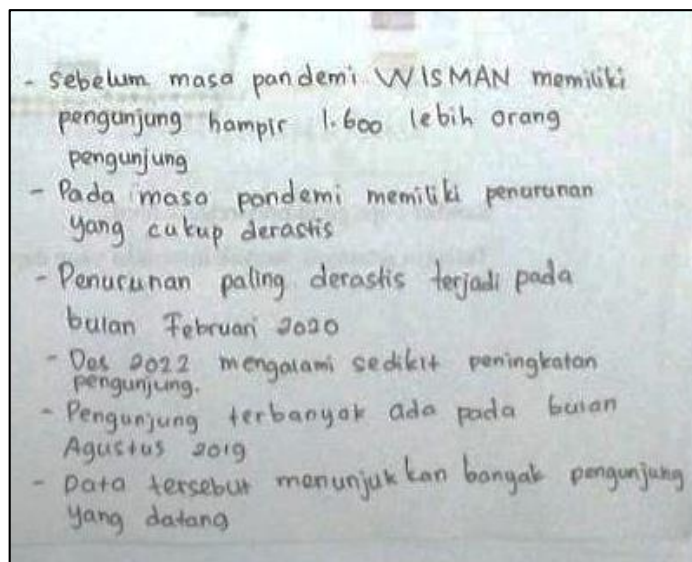 - sebelum masa pandemi WISMAN memiliki
pengunjung hampir 1.600 lebih orang
pengunjung
- Pada masa pandemi memiliki penurunan
yang cukup derastis
- Penurunan paling derastis terjadi pada
bulan Februari 2020
- Des 2022 mengalami sedikit peningkatan
pengunjung.
- Pengunjung terbanyak ada pada bulan
Agustus 2019
- Data tersebut menunjukkan banyak pengunjung
yang datang